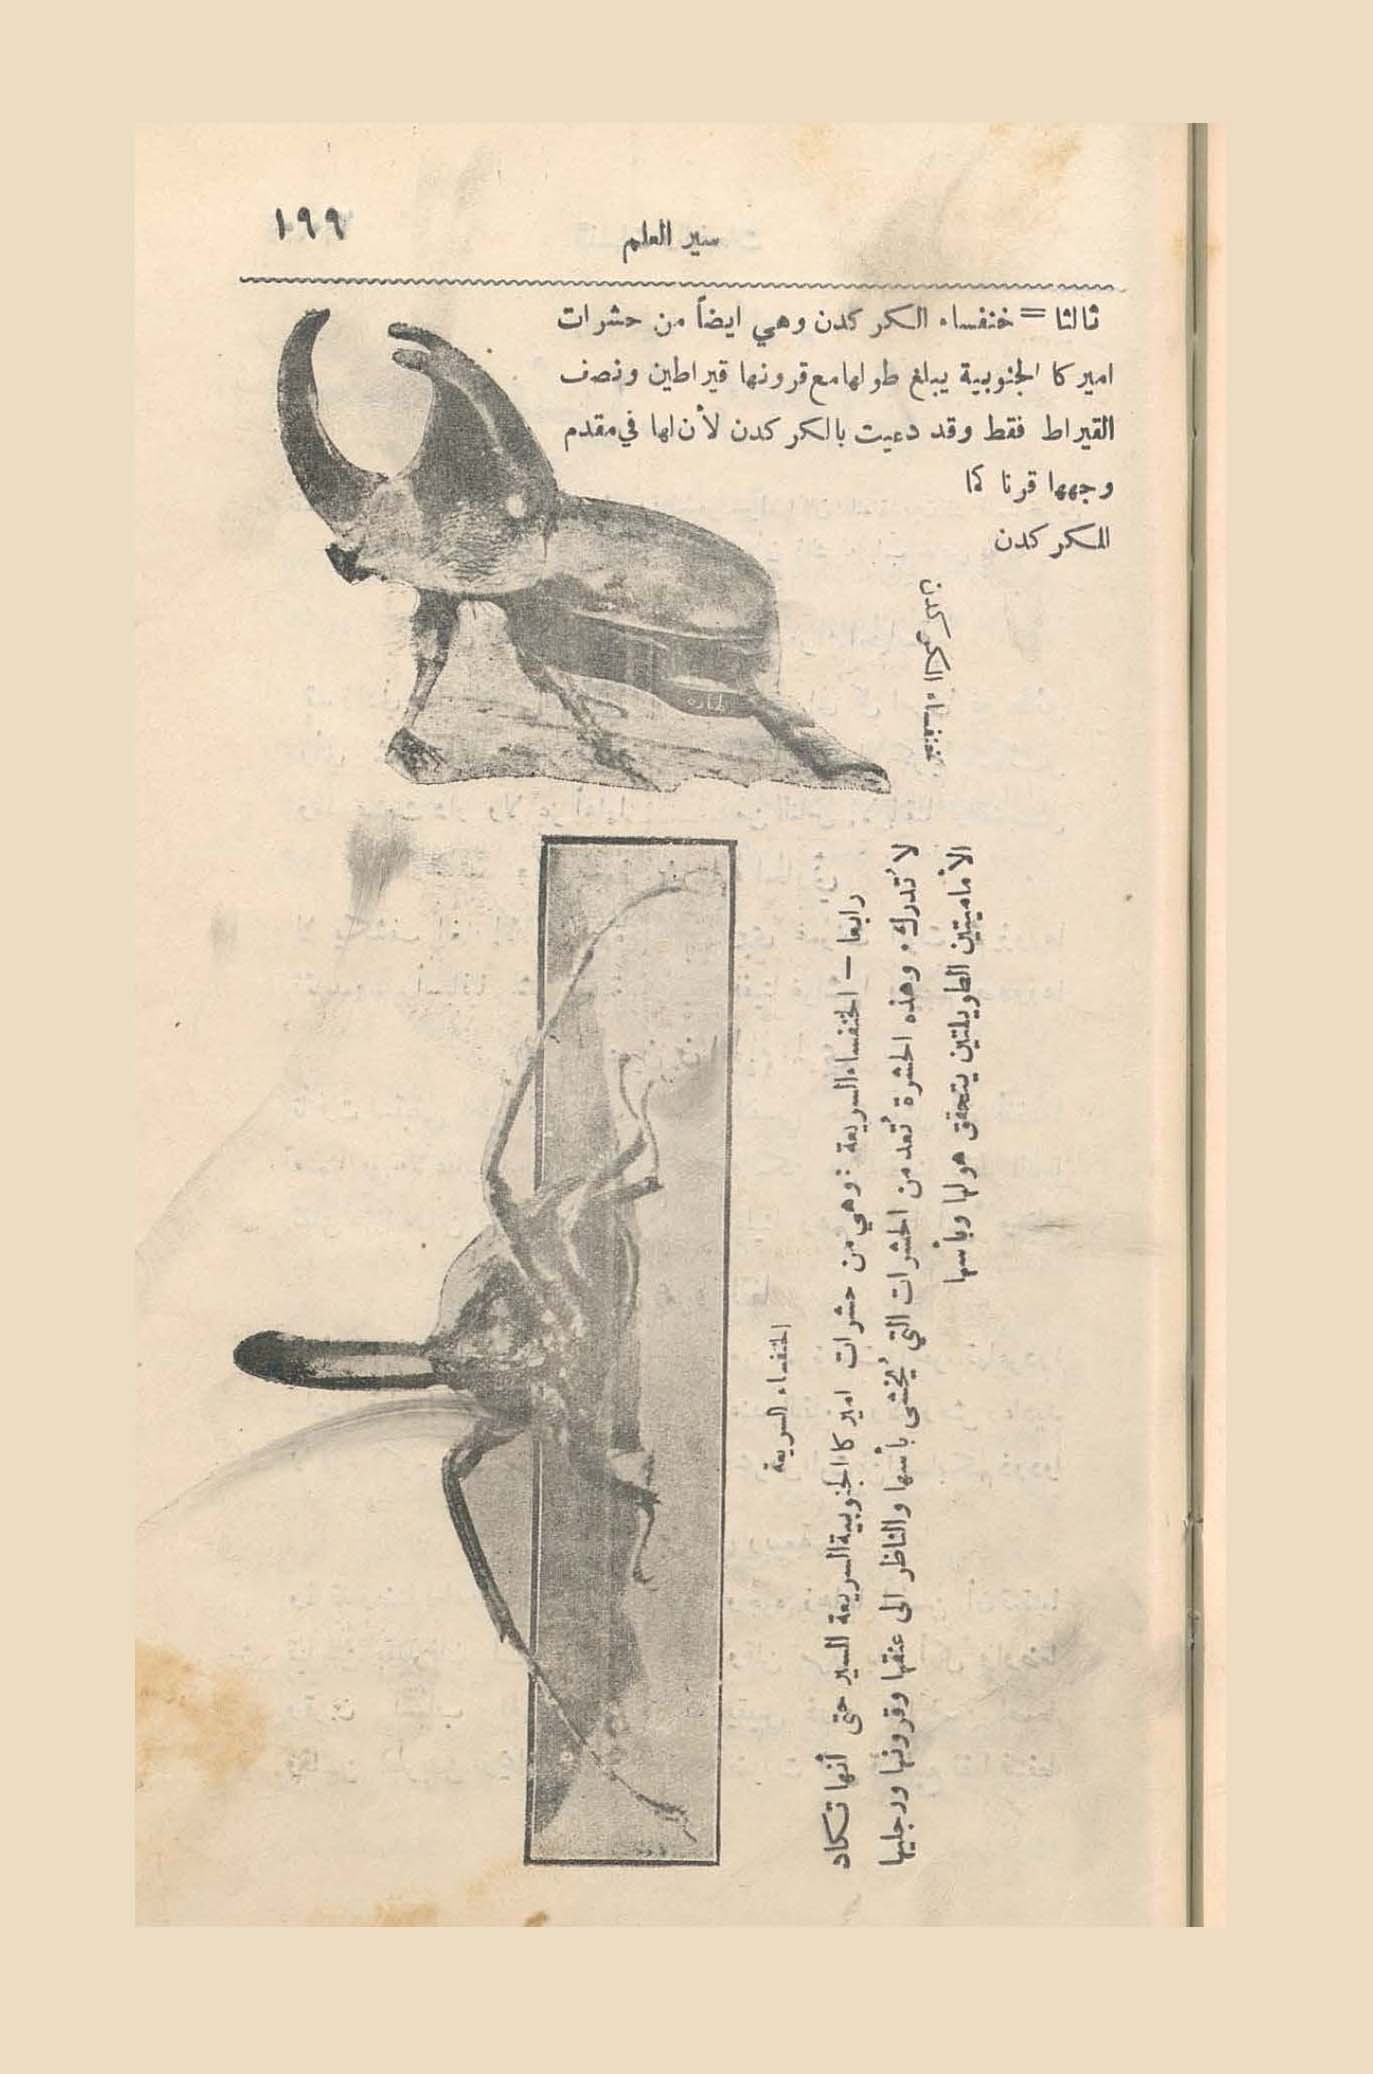 ١٩٩
سير العلم
ثالثا = خنفساء الكركدن وهي ايضاً من حشرات
اميركا الجنوبية يبلغ طولها مع قرونها قيراطين ونصف
القيراط فقط وقد دعيت بالكركدن لأن لها في مقدم
وجهها قرنا كما
للكركدن
خنفساء الكركدن
الخنفساء السريعة
رابعا — الخنفساء السريعة : وهي من حشرات اميركا الجنوبية السريعة السير حتى أنها تكاد
لا تُدرك، وهذه الحشرة تُعد من الحشرات التي يُخشى بأسها والناظر الى عنقها وقرونها ورجليها
الأماميتين الطويلتين يتحقق هولها وبأسها